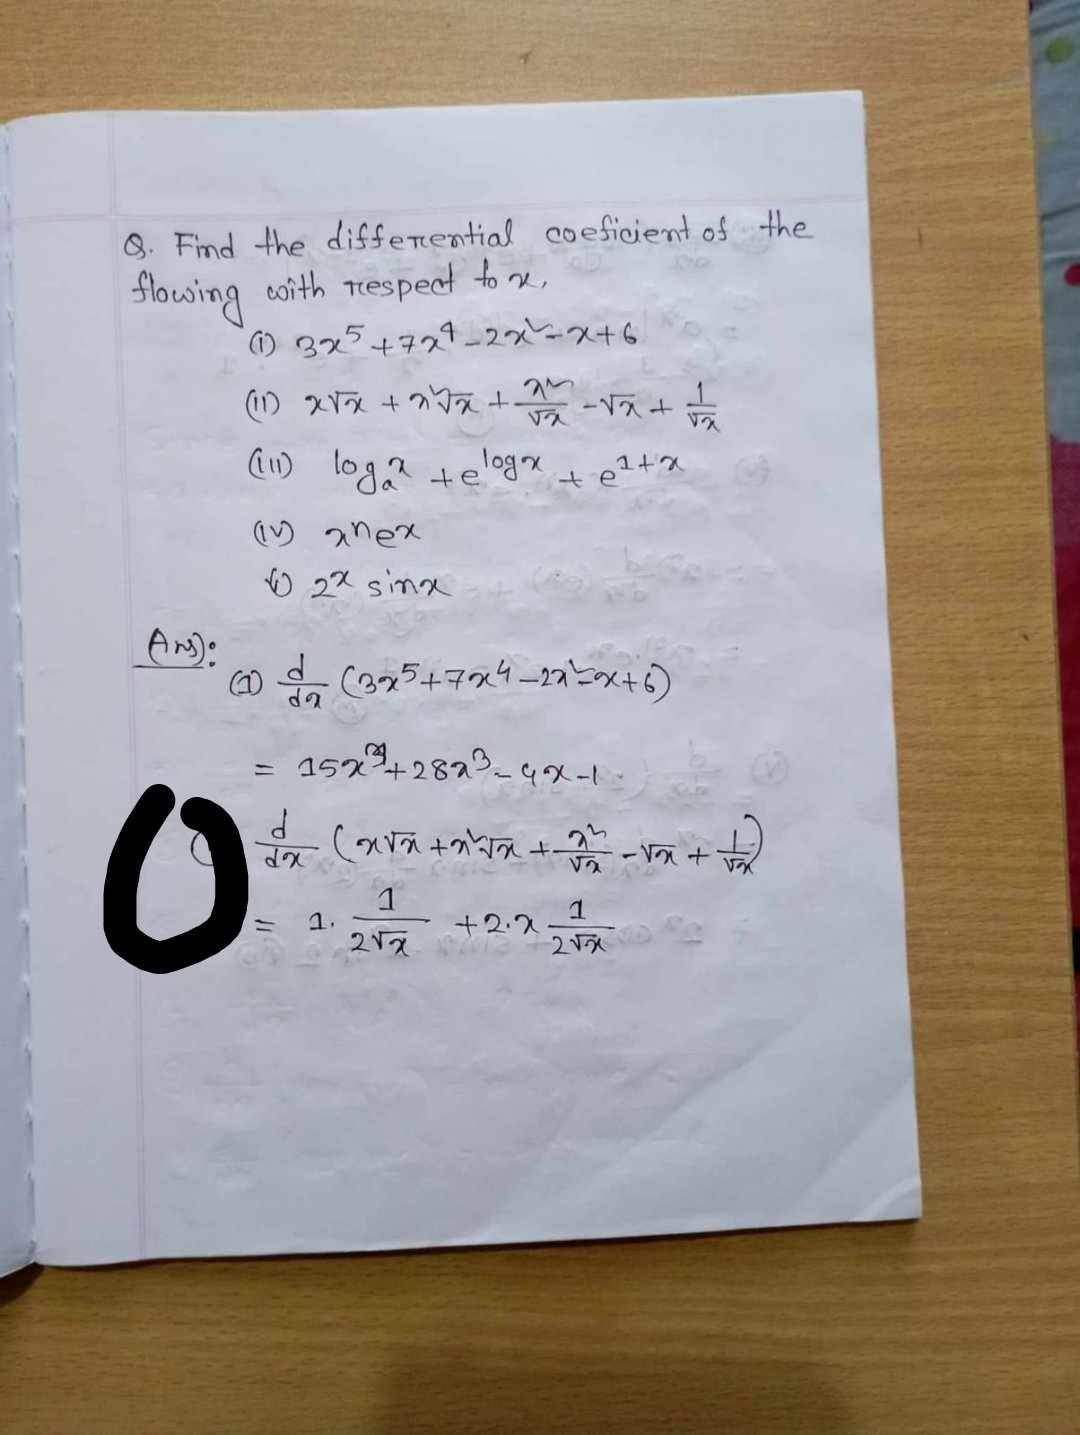 Q. Find the differential coeficient of the
flowing with respect to x,
(i) 3x⁵ + 7x⁴ - 2x² - x + 6
(ii) x√x + x²√x + x²/√x - √x + 1/√x
(iii) logₐx + e^logx + e^1+x
(iv) xⁿex
(v) 2ˣ sinx
Ans):
(1) d/dx (3x⁵ + 7x⁴ - 2x² - x + 6)
= 15x⁴ + 28x³ - 4x - 1
d/dx (x√x + x²√x + x²/√x - √x + 1/√x)
= 1. 1/2√x + 2.x 1/2√x